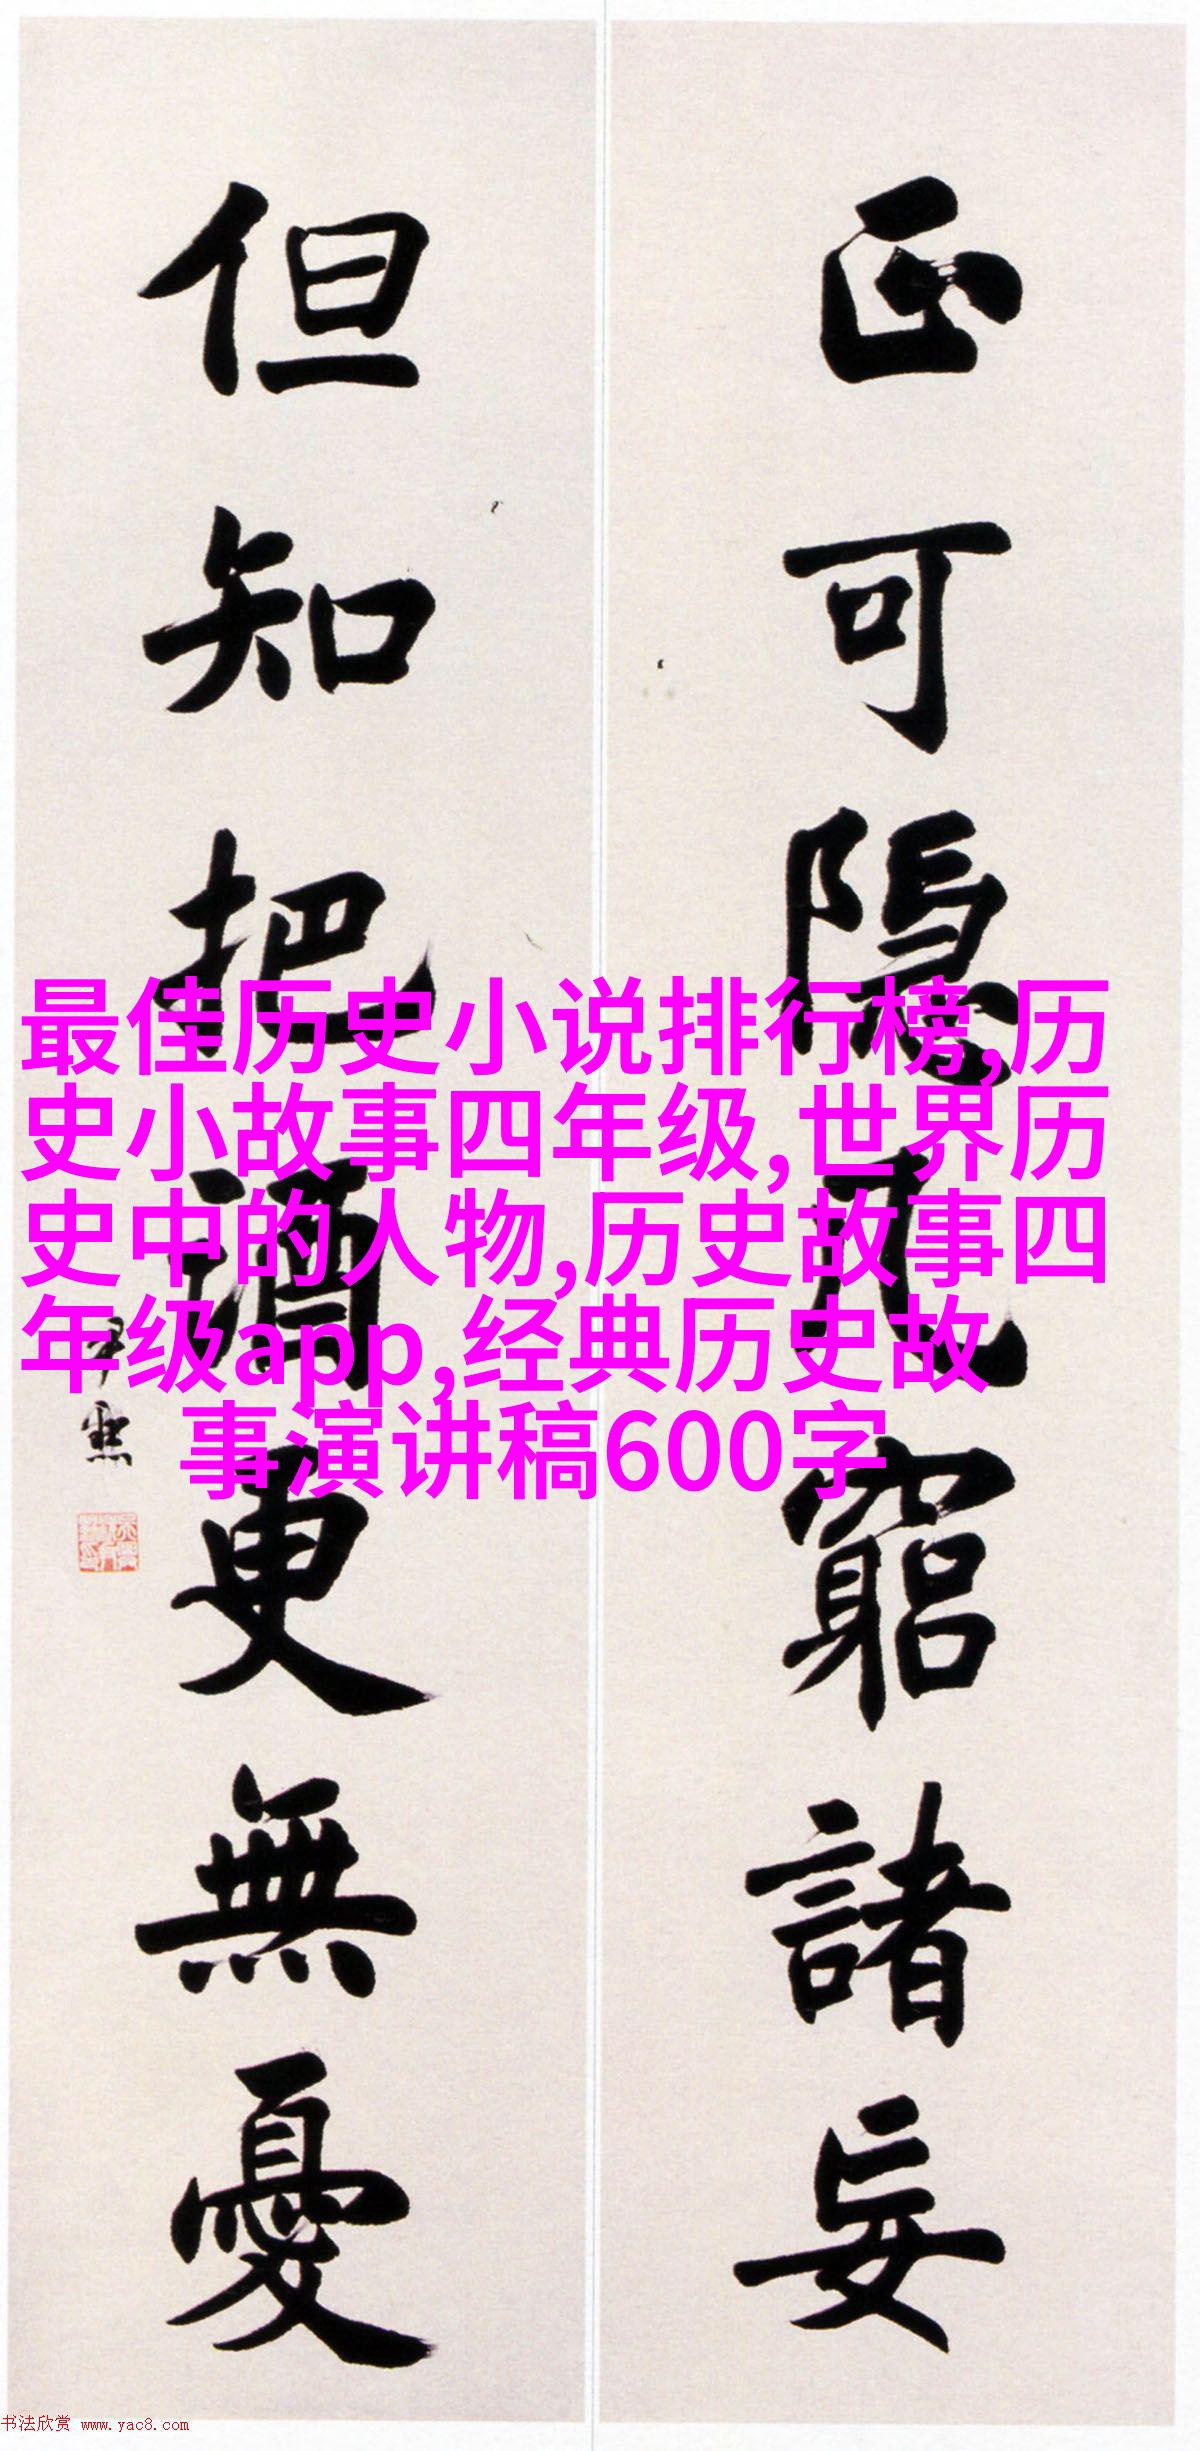 正可隐几窮諸妄
但知把酒更無憂
最佳历史小说排行榜,历
史小故事四年级,世界历
史中的人物,历史故事四
年级app,经典历史故
事演讲稿600字
书法欣赏 www.yac8.com